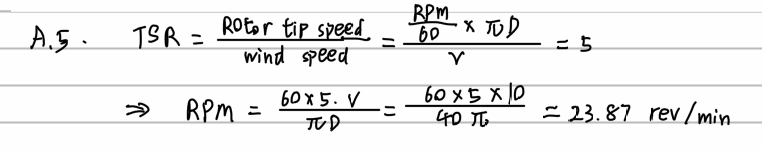 A.5. TSR = Rotor tip speed / wind speed = (RPm/60 × πD) / V = 5
⇒ RPm = 60×5.V / πD = 60×5×10 / 40π = 23.87 rev/min